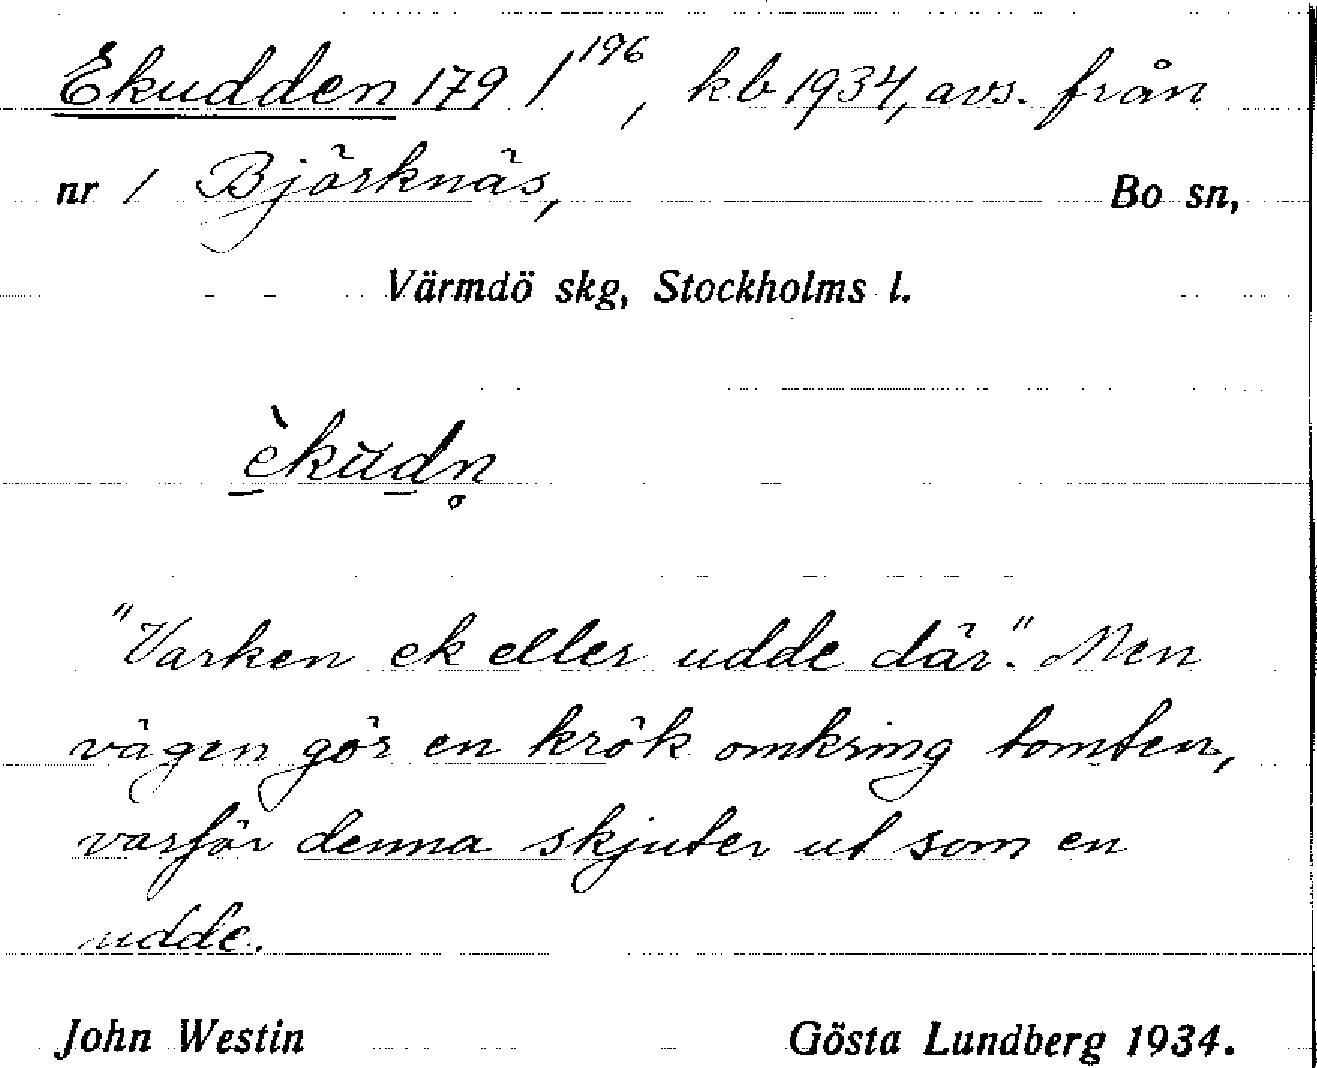 Ekudden 179 / 196, kb 1934, avs. från
nr 1 Björknäs, Bo sn,
Värmdö skg, Stockholms l.
èkudn̥
"Varken ek eller udde där". Men
vägen gör en krök omkring tomten,
varför denna skjuter ut som en
udde.
John Westin Gösta Lundberg 1934.